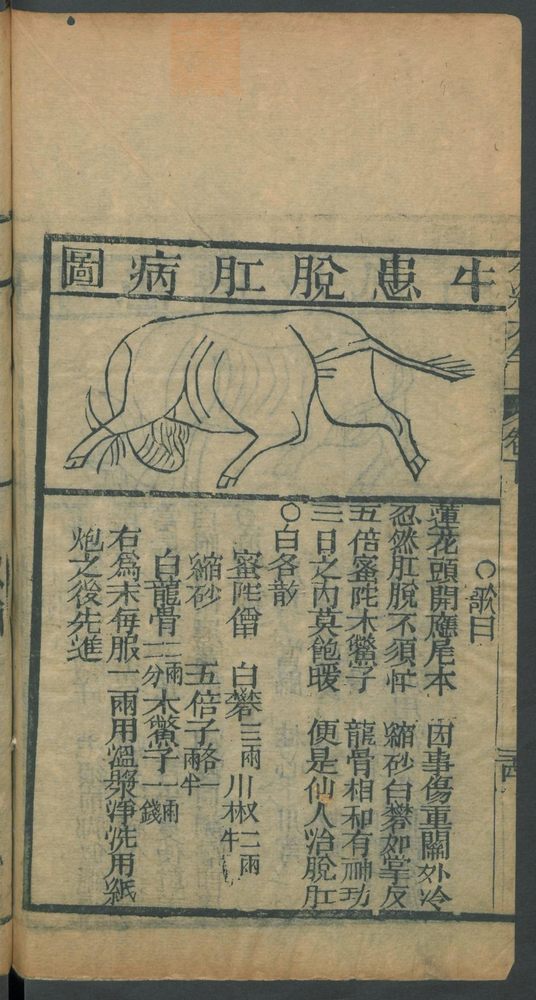 牛患脫肛病圖
○歌曰
蓮花頭開應尾本　因事傷重關外冷
忽然肛脫不須忙　縮砂白礬如掌反
五倍蜜陀木鱉子　龍骨相和有神功
三日之內莫飽暖　便是仙人治脫肛
○白各散
蜜陀僧　白礬三兩　川椒二兩
縮砂　五倍子各一兩半
白龍骨二兩二分　木鱉子一兩一錢
右為末每服一兩用溫漿淨洗用紙
炮之後先進